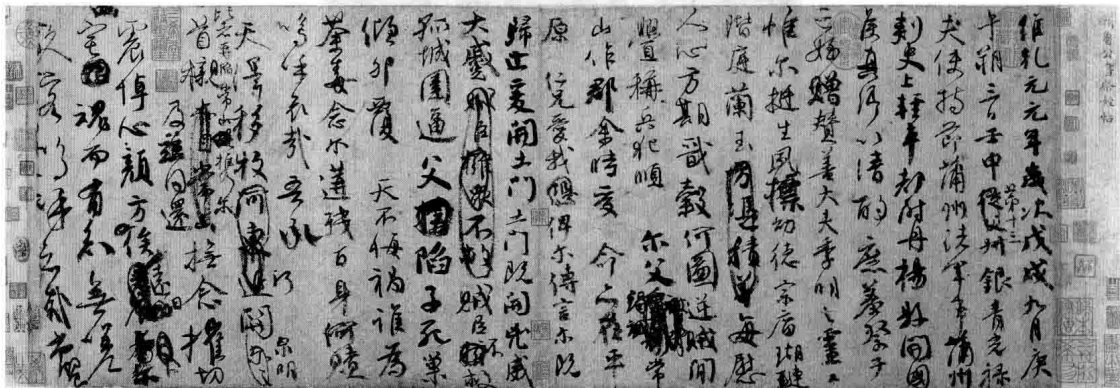 維乾元元年歲次戊戌九月庚
午朔三日壬申第十三叔銀青光祿
夫使持節蒲州諸軍事蒲州
刺史上輕車都尉丹楊縣開國
侯真卿以清酌庶羞祭于
亡姪贈贊善大夫季明之靈曰
惟爾挺生夙標幼德宗廟瑚璉
階庭蘭玉方憑積善每慰
人心方期戩穀何圖逆賊間
釁稱兵犯順爾父竭誠常
山作郡余時受命亦在平
原仁兄愛我俾爾傳言爾既
歸止爰開土門土門既開凶威
大蹙賊臣擁眾不救賊臣不救
孤城圍逼父陷子死巢
傾卵覆天不悔禍誰為
荼毒念爾遘殘百身何贖
嗚乎哀哉吾承
天澤移牧河東近河關泉明
比者再陷常山攜爾
首櫬及茲同還撫念摧切
震悼心顏方俟遠日卜
宅魂而有知無嗟
久客嗚呼哀哉尚饗